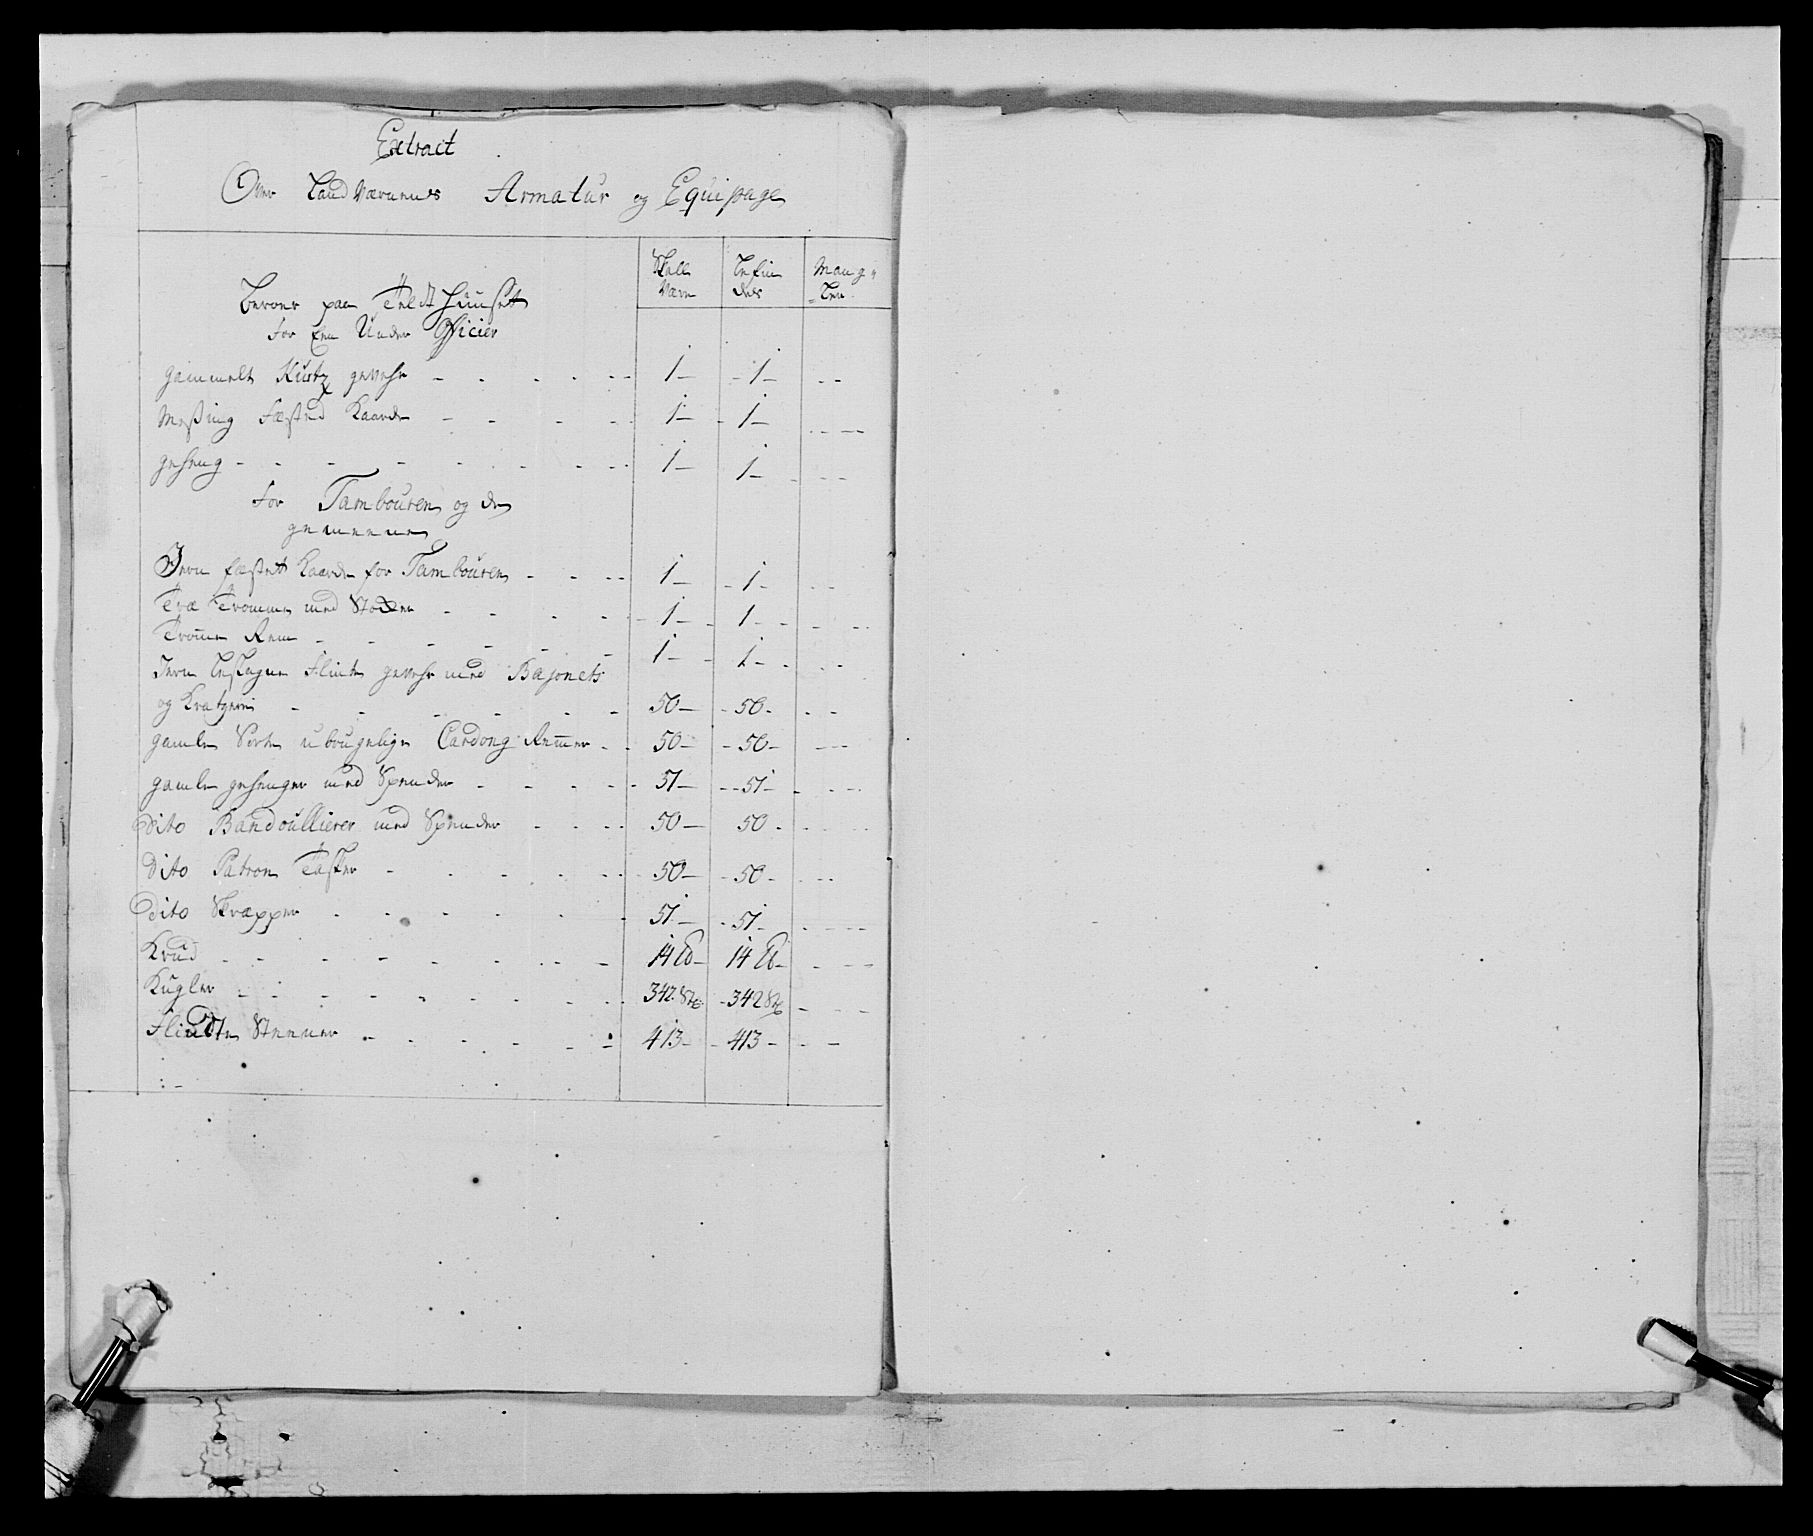 Extract
Over Land Værnenes Armatur og Equipage
Skall Være
Befindes
Mangler
Beroer paa Teldt Huuset
for Een Under Officier
gammelt Kúrtz gevehr - - - - - 1 - - 1 - - -
Messing Fæsted Kaarde - - - - 1 - - 1 - - - -
geheng - - - - - - - - 1 - 1 - - - -
for Tambouren og de
gemeene
Jern fæstet Kaarde for Tambouren - - - - 1 - - 1 - - -
Træ Tromme med Stocker - - - - - 1 - - 1 - - - -
Tromme Rem - - - - - - 1 - - 1 - - - -
Jern beslagne Flinte gevehr med Bajonets
og Kratzeri - - - - - - 50 - - 50 - - -
gamle Sorte ubrugelige Cardong Remmer - - 50 - - 50 - - - -
gamle gehenger med Spender - - - - - 51 - - - 51 - - - - -
Dito Bandoullierer med Spender - - - - 50 - 50 - - - -
Dito Patron Tasker - - - - - - 50 - - 50 - - - -
Dito Skræpper - - - - - - 51 - - 51 - - - - -
Krud - - - - - - - - - 14 ℔ - 14 ℔ - - - -
Kugler - - - - - - - - - 342 Stk - 342 Stk - - -
Flindte Steener - - - - - - 413 - - 413 - - -